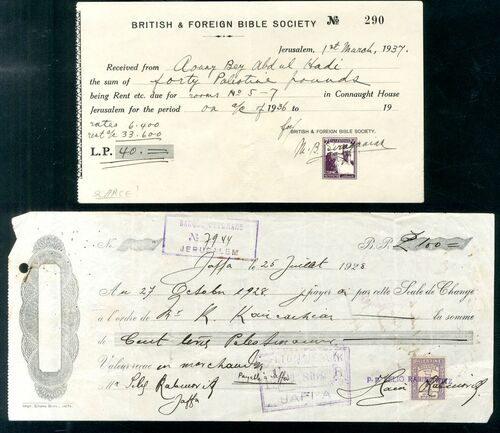 BRITISH & FOREIGN BIBLE SOCIETY № 290
Jerusalem, 1st March, 1937.
Received from Bey Abdul Hadi
the sum of forty Palestine pounds
being Rent etc. due for rooms No 5-7 in Connaught House
Jerusalem for the period on a/c of 1936 to 19
rates 6.400
rent a/c 33.600
for BRITISH & FOREIGN BIBLE SOCIETY,
L.P. 40.=
SCARCE!
No. JERUSALEM № 7944 B.P. £100=
Jaffa le 25 Juillet 1928
Au 27 October 1928 payer par cette Seule de Change
à l'ordre de Mr K. la somme
de Cent livres Palestiniennes
Valeur reçue en marchandises
Payable à Jaffa
PALESTINE
JAFFA
Jaffa